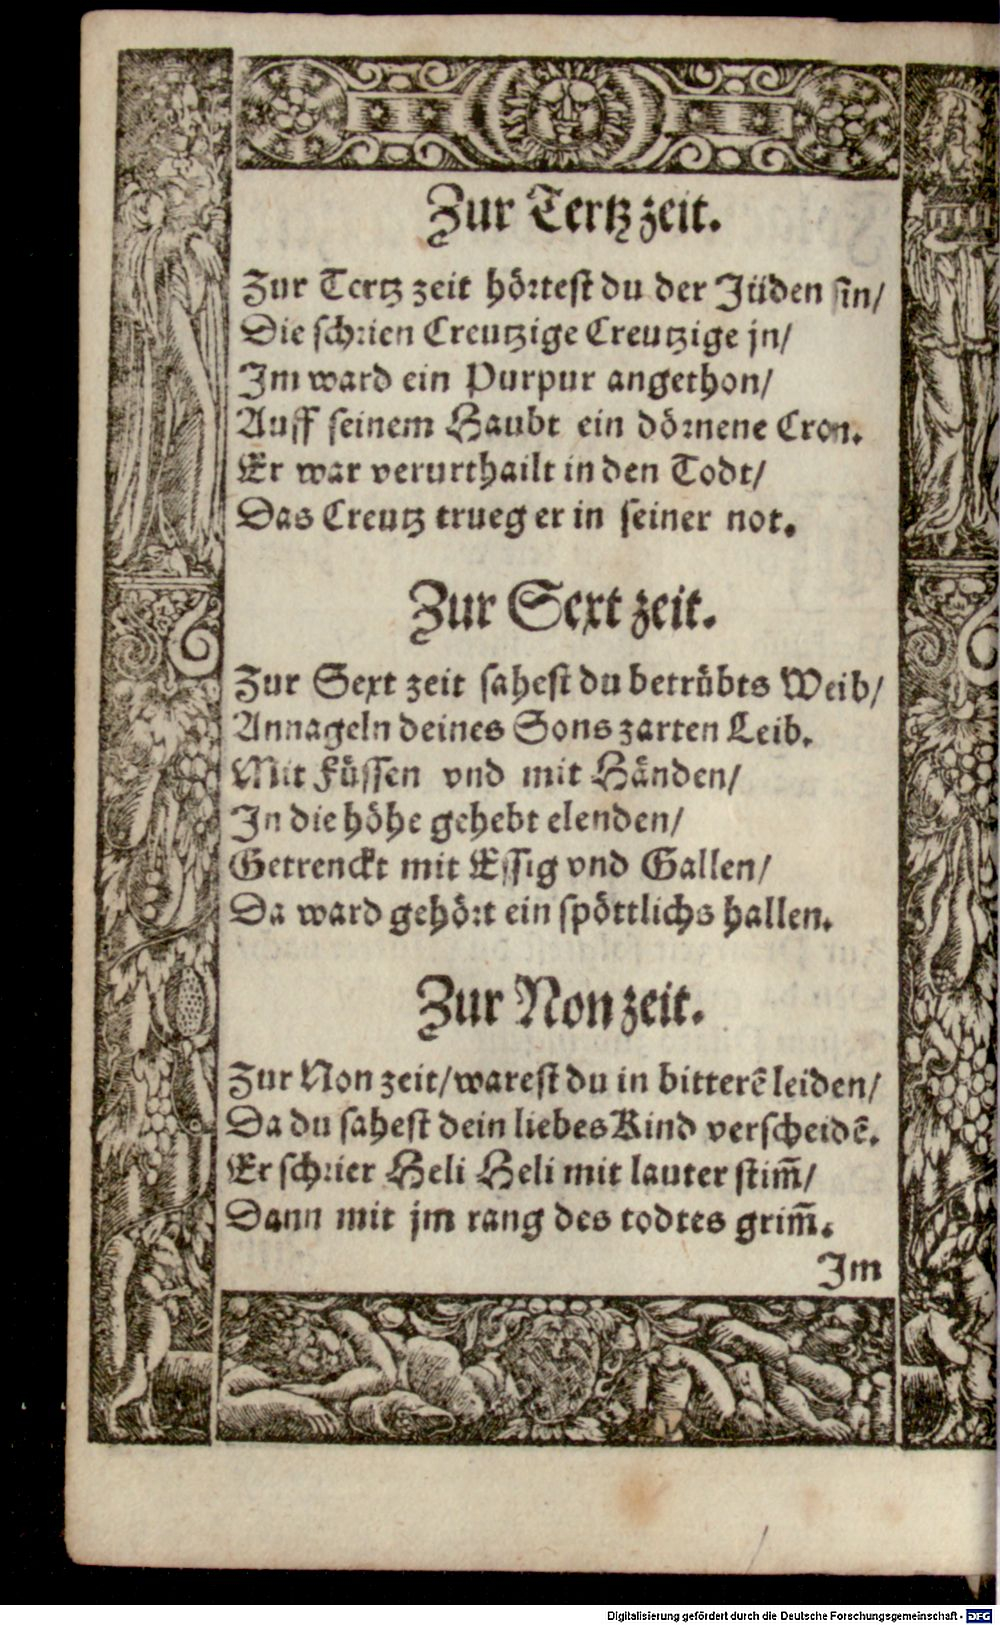 Zur Tertz zeit.
Zur Tertz zeit hörtest du der Jüden sin/
Die schrien Creutzige Creutzige jn/
Im ward ein Purpur angethon/
Auff seinem Haubt ein dörnene Cron.
Er war verurthailt in den Todt/
Das Creutz trueg er in seiner not.
Zur Sext zeit.
Zur Sext zeit sahest du betrübts Weib/
Annageln deines Sons zarten Leib.
Mit Füssen vnd mit Händen/
In die höhe gehebt elenden/
Getrenckt mit Essig vnd Gallen/
Da ward gehört ein spöttlichs hallen.
Zur Non zeit.
Zur Non zeit/ warest du in bitterē leiden/
Da du sahest dein liebes Kind verscheidē.
Er schrier Heli Heli mit lauter stim̄/
Dann mit jm rang des todtes grim̄.
Im
Digitalisierung gefördert durch die Deutsche Forschungsgemeinschaft - DFG